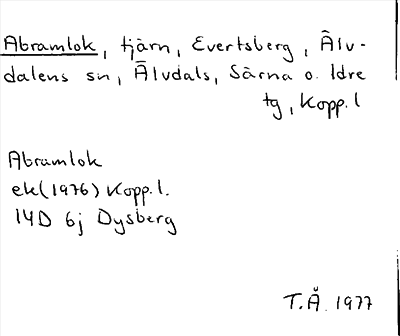 Abramlok, tjärn, Evertsberg, Älv-
dalens sn, Älvdals, Särna o. Idre
tg, Kopp. l
Abramlok
ek (1976) Kopp. l.
14D 6j Dysberg
T.Å. 1977